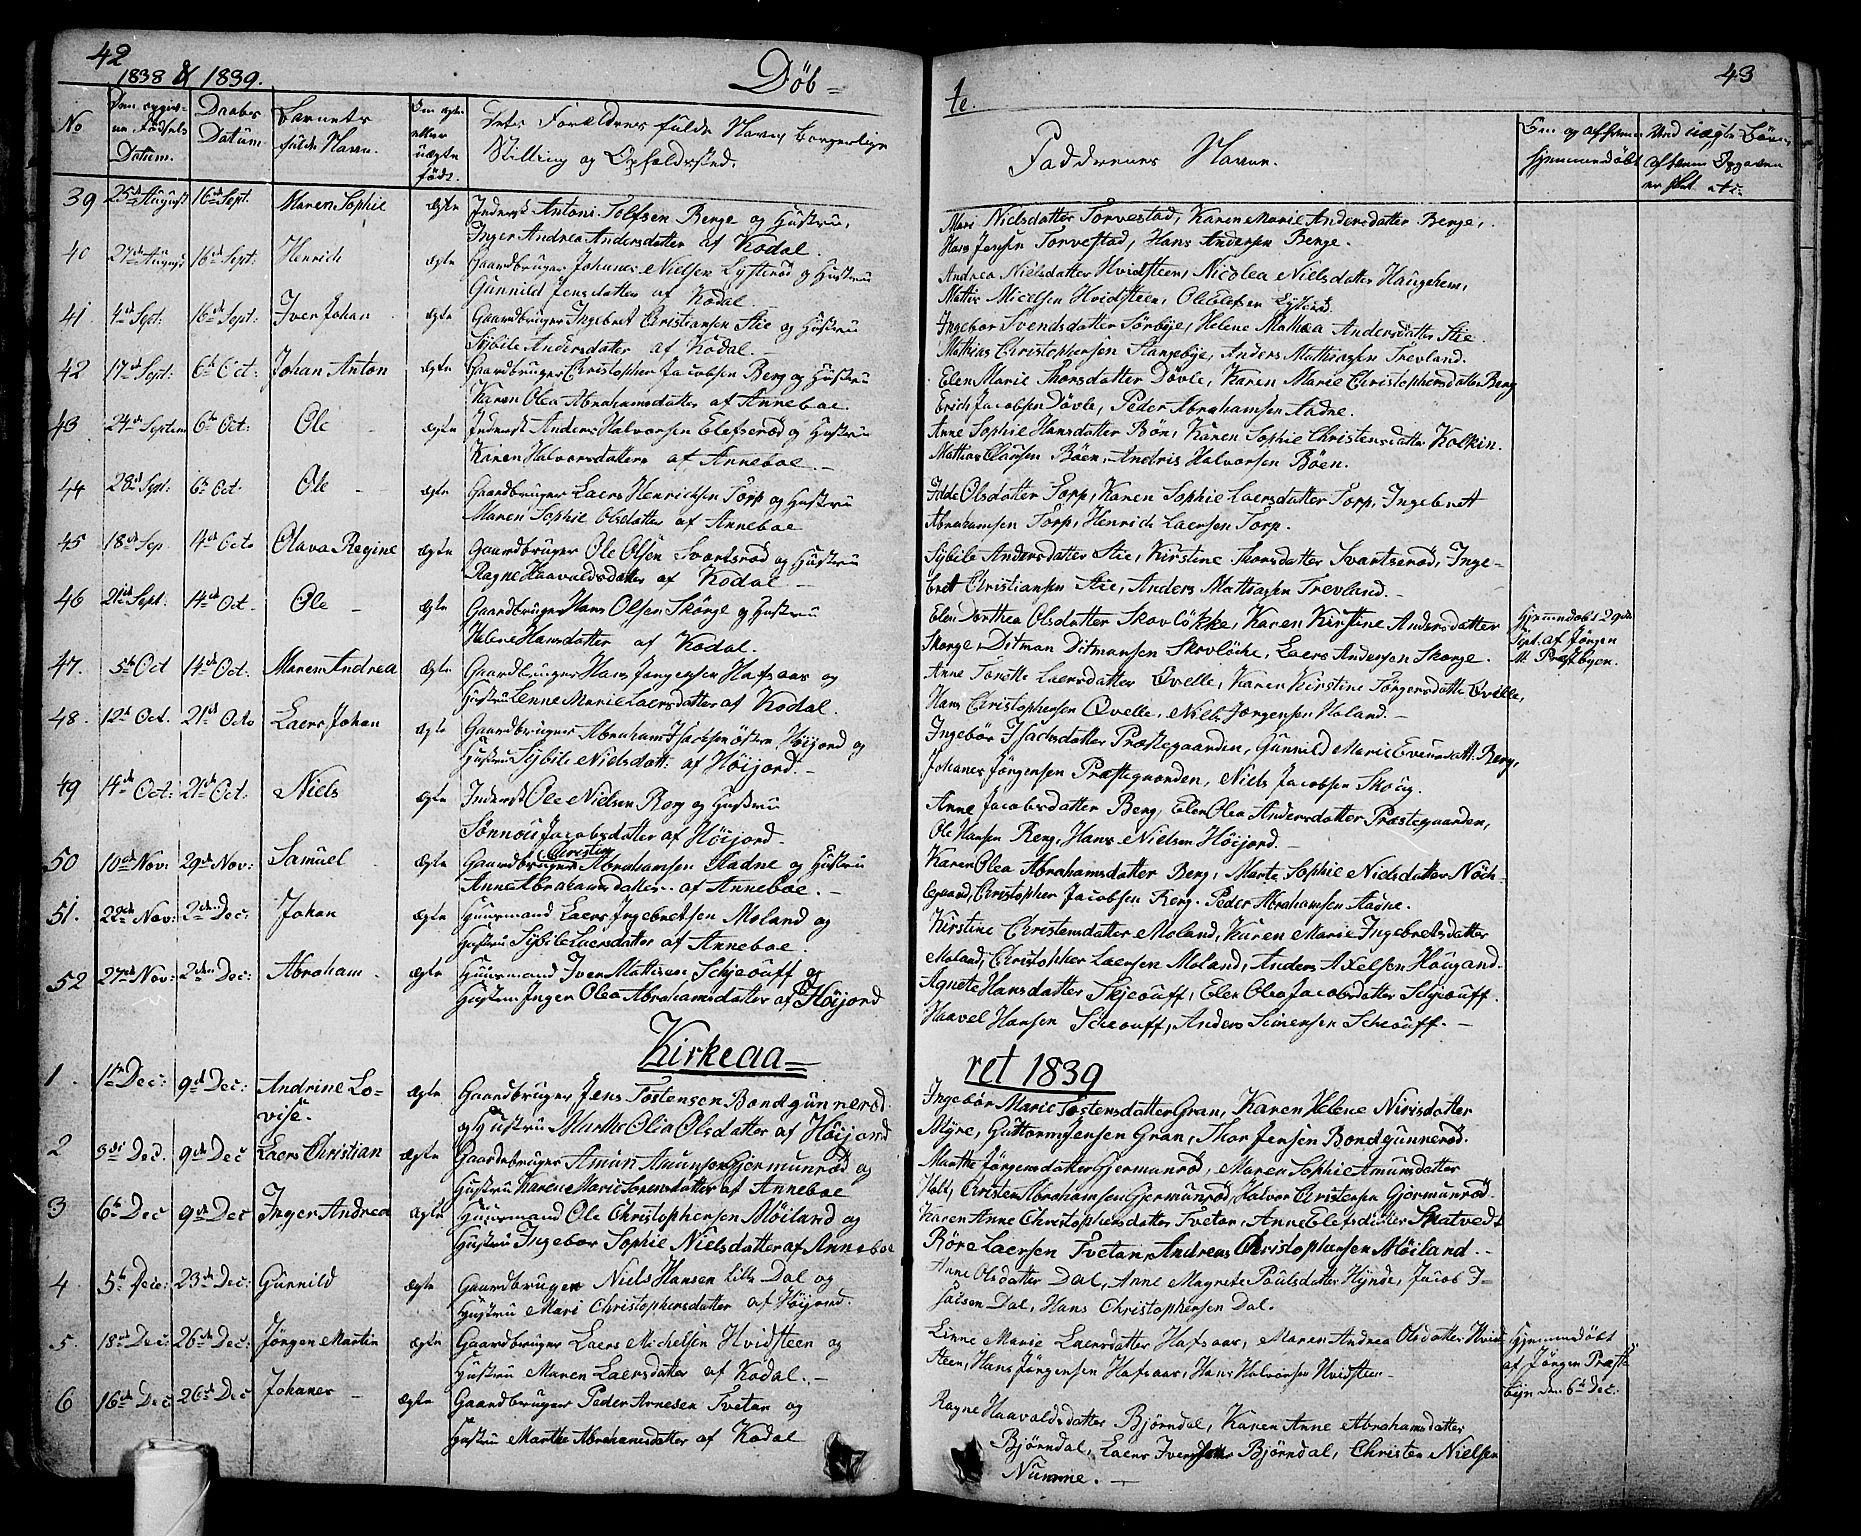 42
1838 & 1839.
Döb=
No
Den opgiv-
ne Födsels
Datum.
Daabs
Datum
Barnets
fulde Navn.
Om ægte
eller
uægte
födt.
Forældrenes fulde Navn, borgerlige
Stilling og Opholdssted.
39 25de August 16de Sept. Maren Sophie ægte Inderst Antoni Tolfsen Berge og Hustru,
Inger Andrea Andersdatter af Kodal.
40 27de August 16de Sept: Henrich ægte Gaardbruger Johanes Nielsen Lysterød og Hustru
Gunnild Jensdatter af Kodal.
41 4de Sept: 16de Sept: Iver Johan ægte Gaardbruger Ingebret Christiansen Stie og Hustru
Sybile Andersdatter af Kodal.
42 17de Sept: 6te Oct: Johan Anton ægte Gaardbruger Christopher Jacobsen Berg og Hustru
Karen Olea Abrahamsdatter af Anneboe.
43. 24de Septem 6te Oct: Ole ægte Inderst Anders Halvorsen Elefserød og Hustru
Karen Halvorsdatter af Anneboe.
44 28de Sept: 6te Oct. Ole ægte Gaardbruger Laers Henrichsen Torp og Hustru
Maren Sophie Olsdatter af Anneboe
45 18de Sep. 14de Octo Olava Regine ægte Gaardbruger Ole Olsen Svartsrød og Hustru
Ragne Haavaldsdatter af Kodal
46 21de Sept. 14de Oct. Ole ægte Gaardbruger Hans Olsen Skorge og Hustru
Helene Hansdatter af Kodal.
47. 5te Oct 14de Oct. Maren Andrea ægte Gaardbruger Hans Jørgensen Hafsaas og
Hustru Lenne Marie Laersdatter af Kodal.
48. 12te Oct. 21de Octo Laers Johan ægte Gaardbruger Abraham Isachsen östern Höijord og
Hustru Sybile Nielsdatt: af Höijord.
49 14de Oct: 21de Oct. Niels ægte Inderst Ole Nielsen Berg og Hustru
Sønnou Jacobsdatter af Höijord.
50 10de Nov: 29de Nov: Samuel ægte Gaardbruger Christen Abrahamsen Aadne og Hustru
Anne Abrahamsdatter af Anneboe.
51. 22de Nov: 2den Dec: Johan ægte Huusmand Laers Ingebretsen Moland og
Hustru Sybile Laersdatter af Anneboe
52 27de Nov: 2den Dec: Abraham ægte Huusmand Iver Mathisen Schjeouff og
Hustru Inger Olea Abrahamsdatter af Höijord
Kirkeaa=
1. 1te Dec: 9de Dec: Andrine Lo-
vise. ægte Gaardbruger Jens Tostensen Bondgunnerød
og Hustru Marthe Olia Olsdatter af Höijord
2 3de Dec. 9de Dec Laers Christian ægte Gaardbruger Amun Amunsen Gjermunrød og
Hustru Karen Marie Sorensdatter af Anneboe
3 6te Dec 9de Dec Inger Andrea ægte Huusmand Ole Christophersen Möiland og
Hustru Ingebor Sophie Nielsdatter af Anneboe
4 5te Dec: 23de Dec: Gunnild ægte Gaardbruger Niels Hansen lille Dal og
Hustru Mari Christophersdatter af Höijord.
5. 18de Dec: 26de Dec: Jørgen Martin ægte Gaardbruger Laers Michelsen Hvidsteen og
Hustru Maren Laersdatter af Kodal.
6 16de Dec 26de Dec Johanes ægte Gaardbruger Peder Arnesen Tvetan og
Hustru Marthe Abrahamsdatter af Kodal
43
te.
Faddrenes Navne.
Om og af hvem
hjemmedøbt
Ved uægte Børn,
af hvem Opgaven
er skeet
Mari Nielsdatter Torvestad, Karen Marie Andersdatter Berge,
Hans Jensen Torvestad, Hans Andersen Berge.
Andrea Nielsdatter Hvidsteen, Nicolea Nielsdatter Haugehem,
Mathis Micelsen Hvidsteen, Ole Olefsen Lysterød.
Ingebor Svendsdatter Sörbye, Helene Mathea Andersdatter Stie.
Mathias Christophersen Stangebye, Anders Mathiasen Trevland.
Elen Marie Thorsdatter Døvle, Karen Marie Christophersdatter Berg
Erich Jacobsen Døvle, Peder Abrahamsen Aadne.
Anne Sophie Hansdatter Bön, Karen Sophie Christensdatter Kolkin.
Mathias Clausen Böen, Andris Halvorsen Böen.
Olsdatter Torp, Karen Sophie Laersdatter Torp, Ingebret
Abrahamsen Torp, Henrich Laersen Torp.
Sybile Andersdatter Stie, Kirstine Thorsdatter Svartserød, Inge-
bret Christiansen Stie, Anders Mathiasen Trevland.
Elen Dorthea Olsdatter Skovløkke, Karen Kirstine Andersdatter
Skorge, Ditman Ditmansen Skovløche, Laers Andersen Skorge.
Hjemmedøbt 29de
Sept. af Jørgen
M. Præstbyen.
Anne Torette Laersdatter Øvelle, Karen Kirstine Jörgensdatter Øvelle,
Hans Christophersen Øvelle, Niels Jorgensen Holand.
Ingebör Isachsdatter Præstegaarden, Gunnild Marie Evensdatt. Berg,
Johanes Jörgensen Præstegaarden, Niels Jacobsen Skoug.
Anne Jacobsdatter Berg, Elen Olea Andersdatter Præstegaarden,
Ole Hansen Berg, Hans Nielsen Höijord.
Karen Olea Abrahamsdatter Berg, Marte Sophie Nielsdatter Nöch-
legaard, Christopher Jacobsen Berg. Peder Abrahamsen Aadne.
Kirstine Christensdatter Moland, Karen Marie Ingebretsdatter
Moland, Christopher Laersen Moland, Anders Axelsen Hougand.
Agnete Hansdatter Skjeouff, Elen Olea Jacobsdatter Schjeouff.
Haavel Hansen Scheouff, Anders Simensen Scheouff.
ret 1839
Ingebör Marie Tostensdatter Gran, Karen Helene Nirisdatter
Myre, Guttorm Jensen Gran, Thor Jensen Bondgunnerød.
Marthe Jörgensdatter Gjermunrød, Maren Sophie Amunsdatter
Holt, Christen Abrahamsen Gjermunrød, Halvor Christensen Gjermunrød.
Karen Anne Christophersdatter Tvetan, Anne Elefsdatter Skatvedt
Röre Laersen Tvetan, Andreas Christophersen Möiland.
Anne Olsdatter Dal, Anne Magrete Poulsdatter Hynde, Jacob I-
sacsen Dal, Hans Christophersen Dal.
Linne Marie Laersdatter Hafsaas, Maren Andrea Olsdatter Hvid-
steen, Hans Jörgensen Hafsaas, Hans Halvorsen Hvidsteen.
Hjemmedøbt
af Jørgen Præst-
byen den 6te Dec.
Ragne Haavaldsdatter Björndal, Karen Anne Abrahamsdatter
Björndal, Laers Iversen Björndal, Christen Nielsen
Numme.